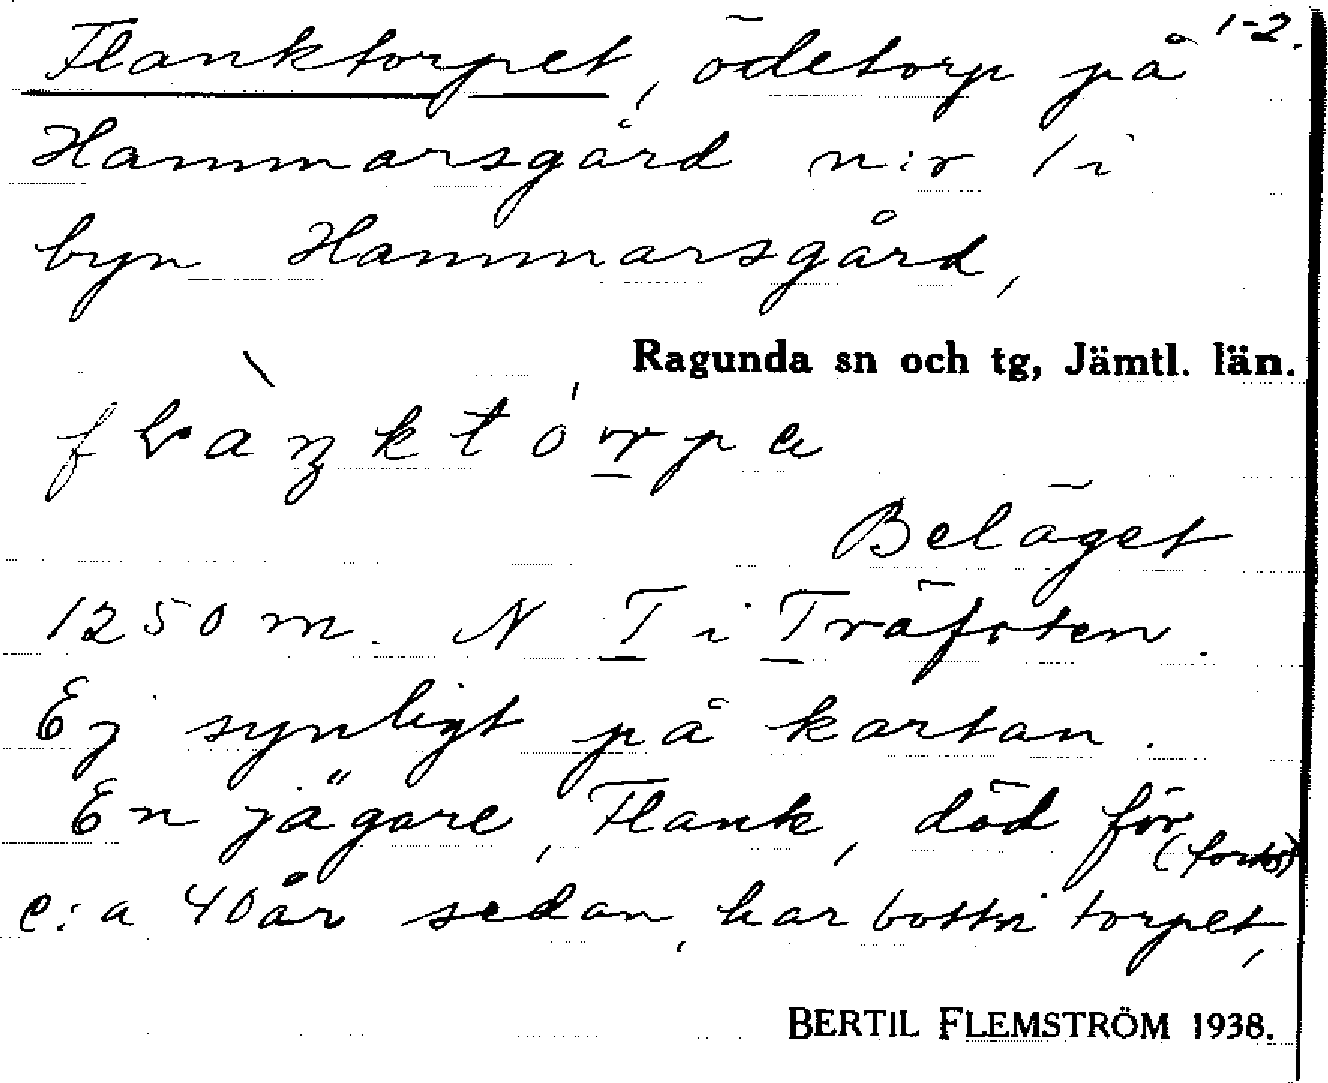 1-2.
Flanktorpet, ödetorp på
Hammarsgård n:r 1 i
byn Hammarsgård,
Ragunda sn och tg, Jämtl. län.
Beläget
1250 m. N T i Träfoten.
Ej synligt på kartan.
En jägare, Flank, död för
(forts)
c:a 40 år sedan, har bott i torpet,
BERTIL FLEMSTRÖM 1938.